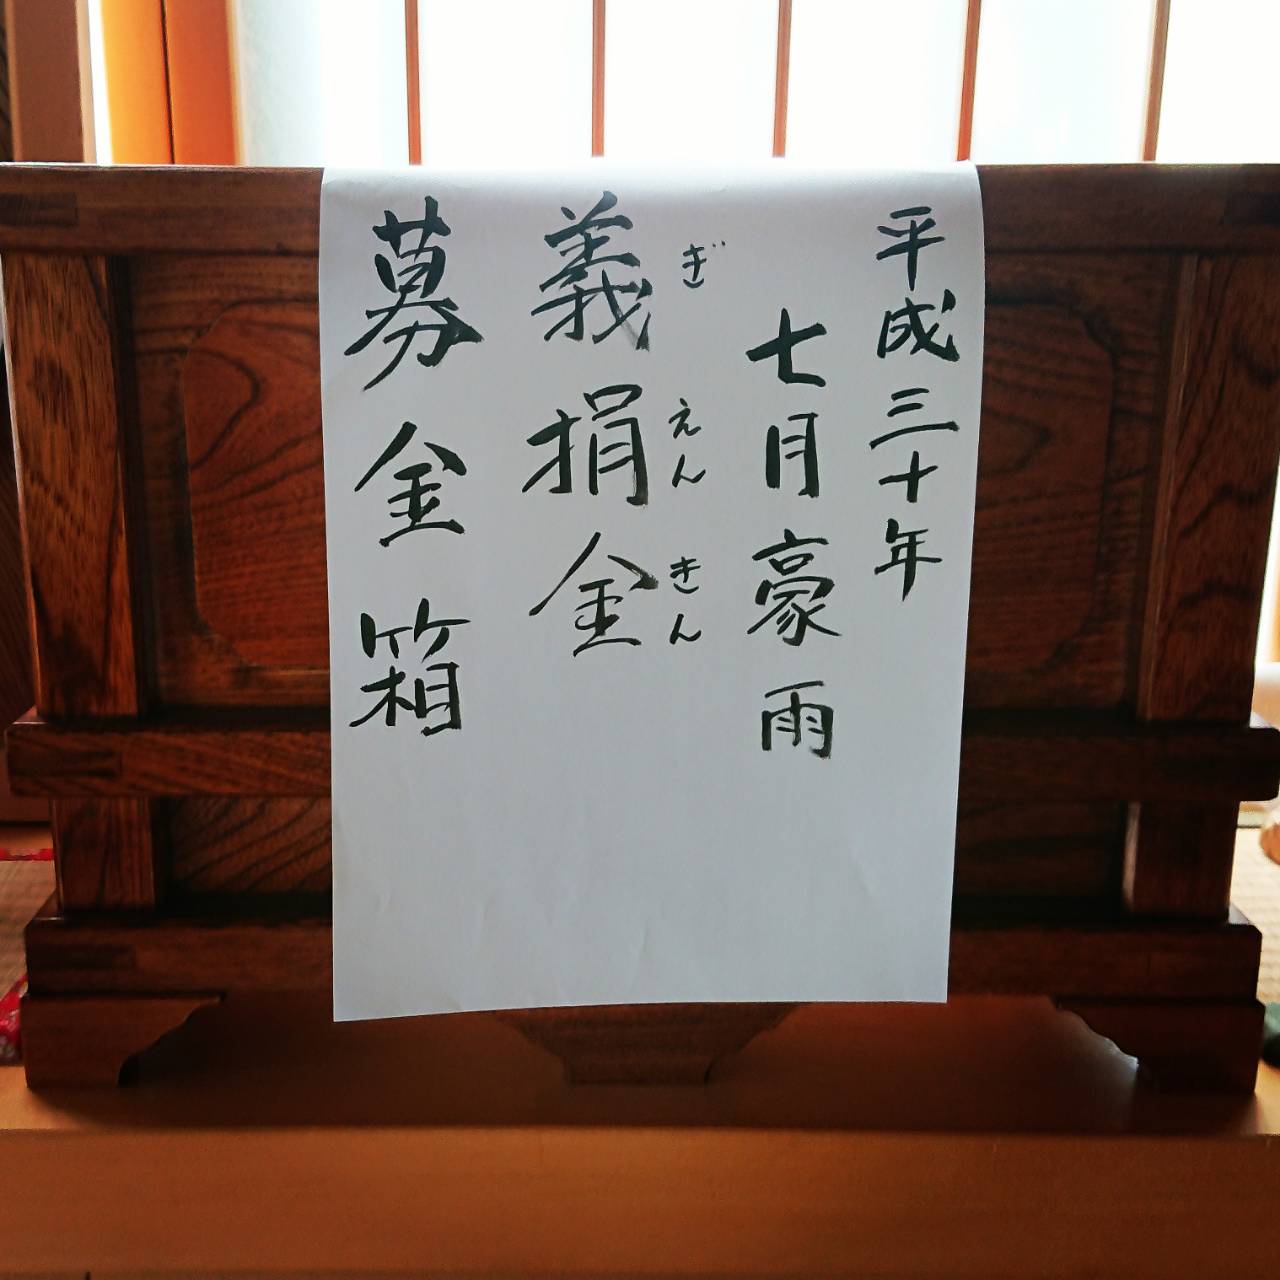 平成三十年
七月豪雨
義捐金
ぎえんきん
募金箱